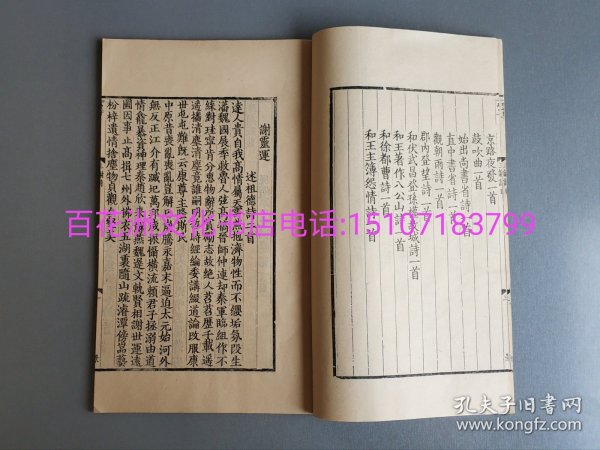 京路夜發一首
鼓吹曲一首
始出尚書省詩一首
直中書省詩一首
觀朝雨詩一首
郡內登望詩一首
和伏武昌登孫權故城詩一首
和王著作八公山詩一首
和徐都曹詩一首
和王主簿怨情詩一首
謝靈運
述祖德詩二首
達人貴自我高情屬天雲兼抱濟物性而不纓垢氛段生
藩魏國展季救魯人弦高犒晉師仲連却秦軍臨組乍不
緤對珪寧肯分惠物辭所賞勵志故絕人苕苕歷千載遥
遥播清塵清塵竟誰嗣明哲時經綸委講綴道論改服康
世屯屯難既云康尊主隆斯民
中原昔喪亂喪亂豈解已崩騰永嘉末逼迫太元始河外
無反正江介有蹙圯萬邦咸振慴橫流賴君子拯溺由道
情龕暴資神理秦趙欣來蘇燕魏遲文軌賢相謝世運遠
圖因事止高揖七州外拂衣五湖裏隨山疏濬潭傍巖藝
枌梓遺情捨塵物貞觀丘壑美
百花洲文化书店电话:15107183799
孔夫子旧书网
www.kongfz.com